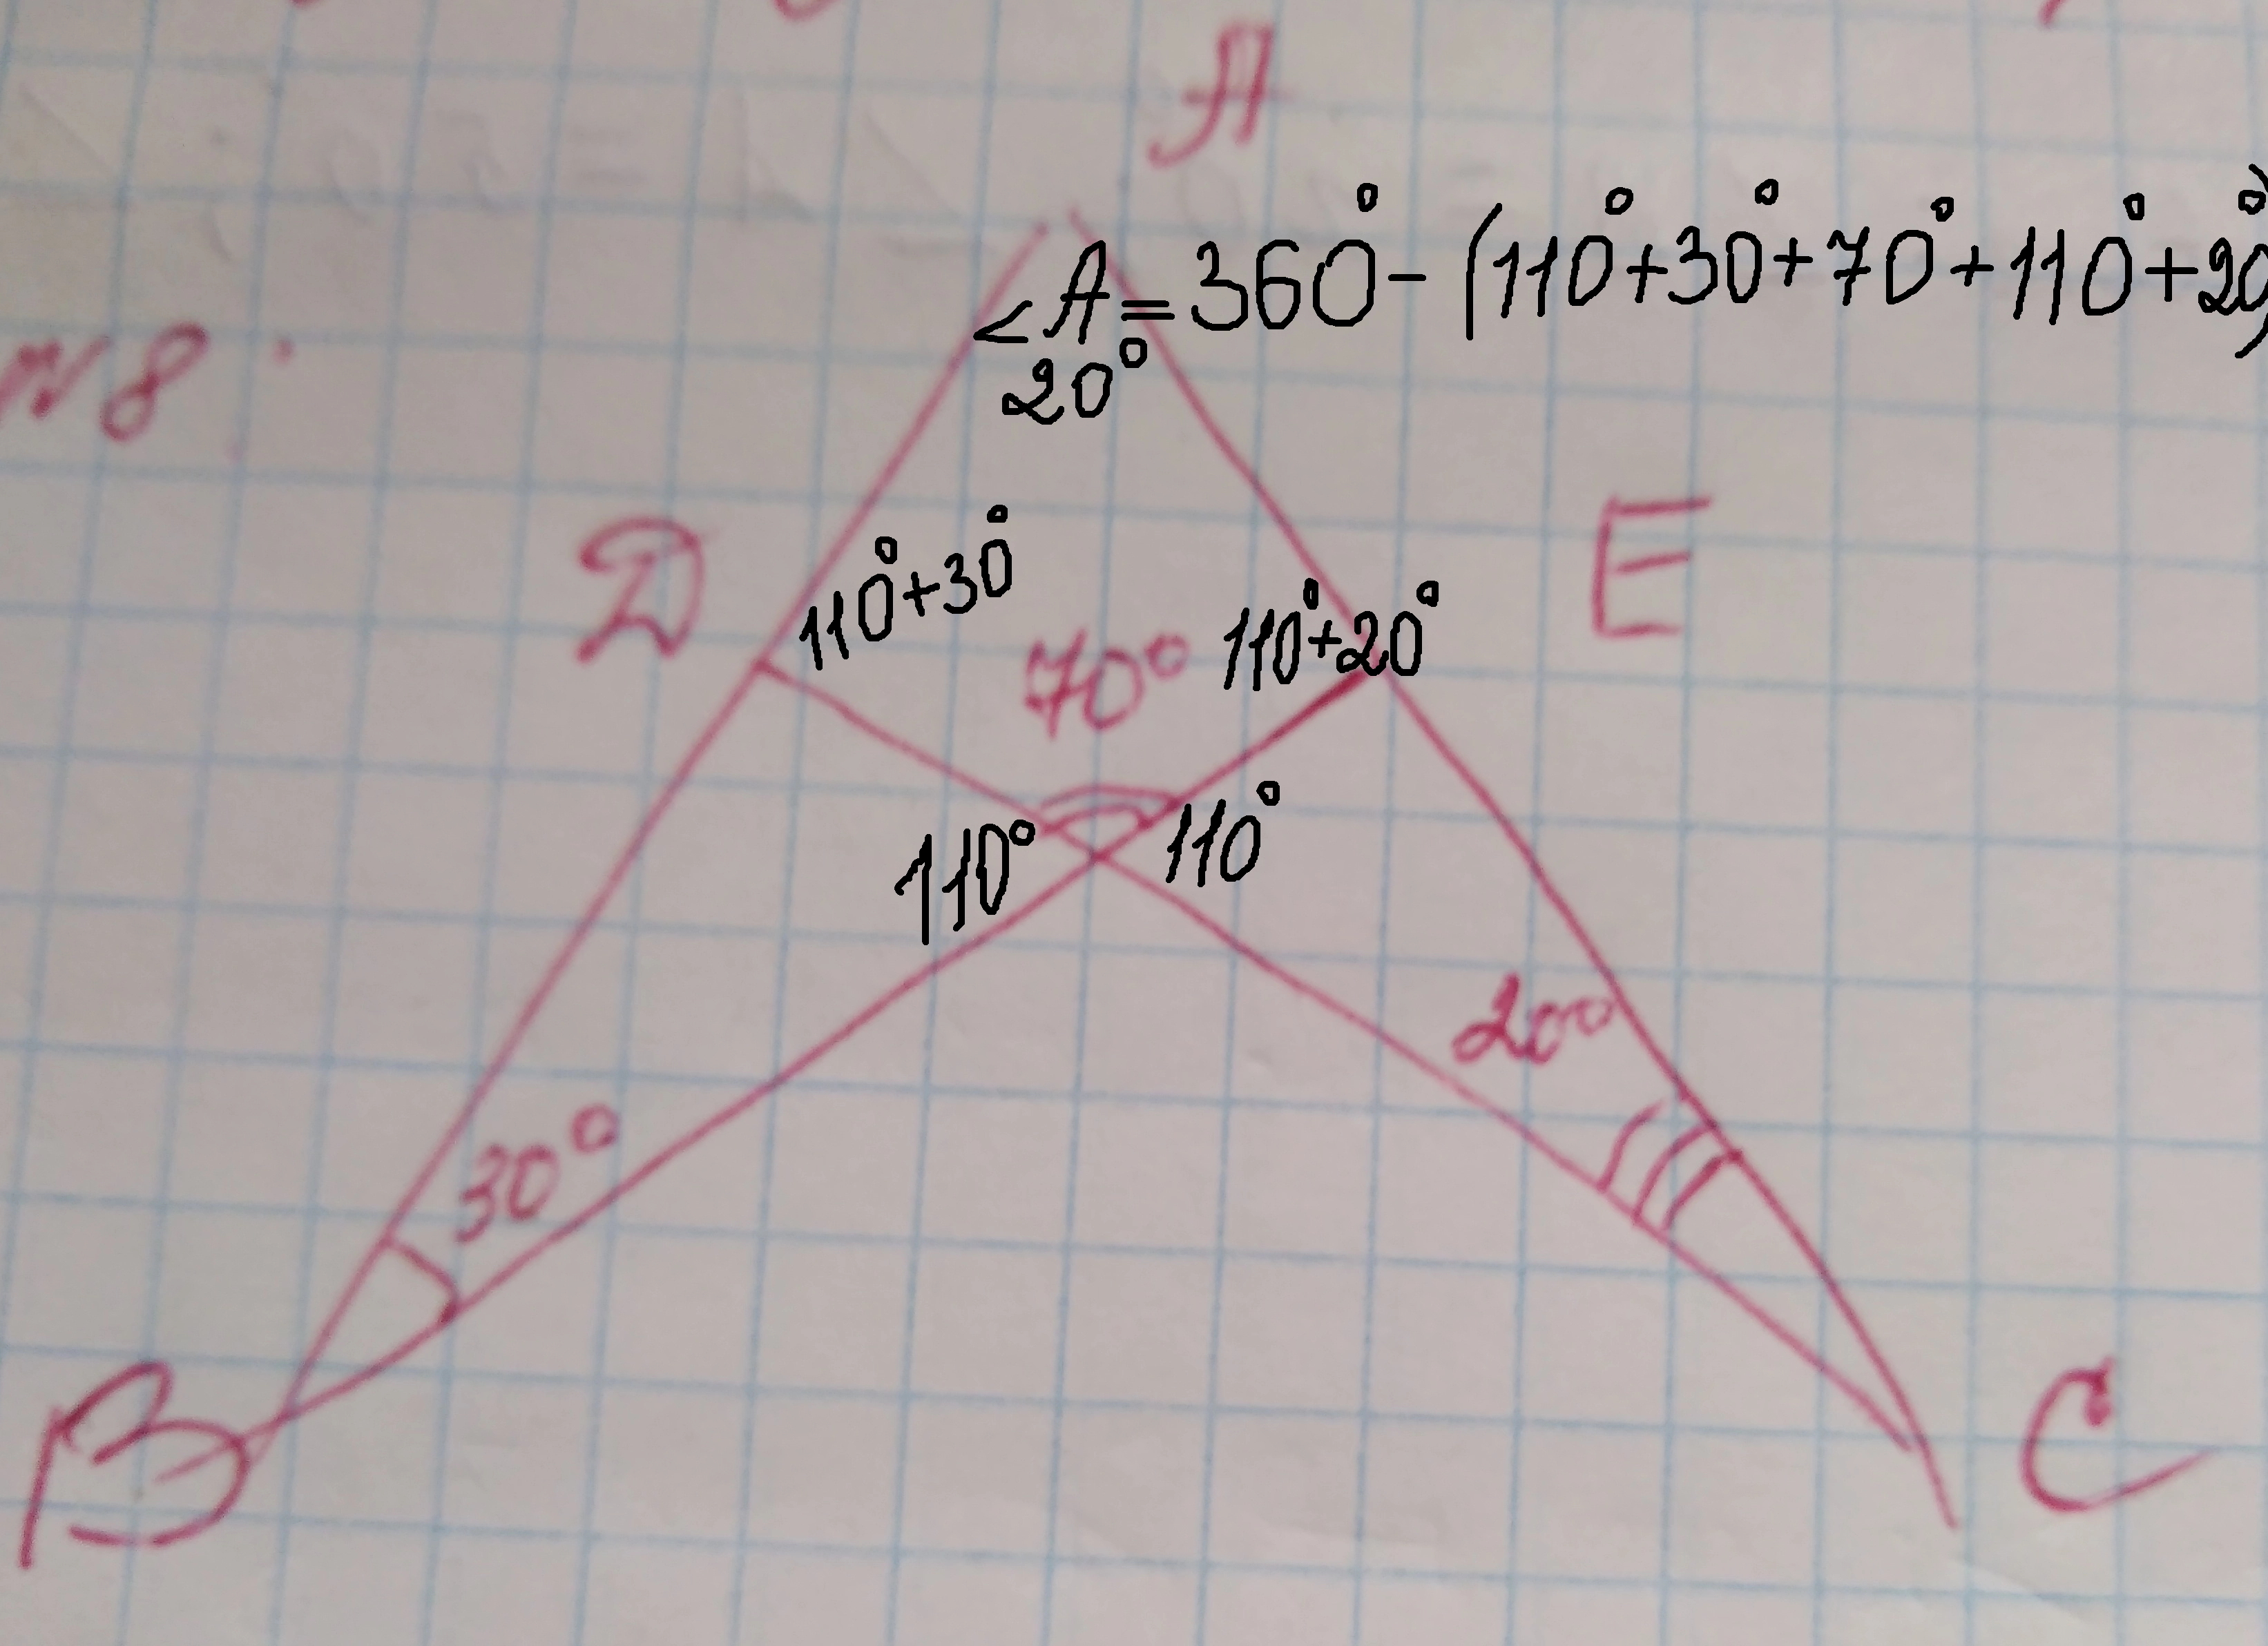 A
<A=360°-(110°+30°+70°+110°+20°)
20°
№8.
D
110°+30°
70°
110°+20°
E
110°
110°
20°
30°
B
C